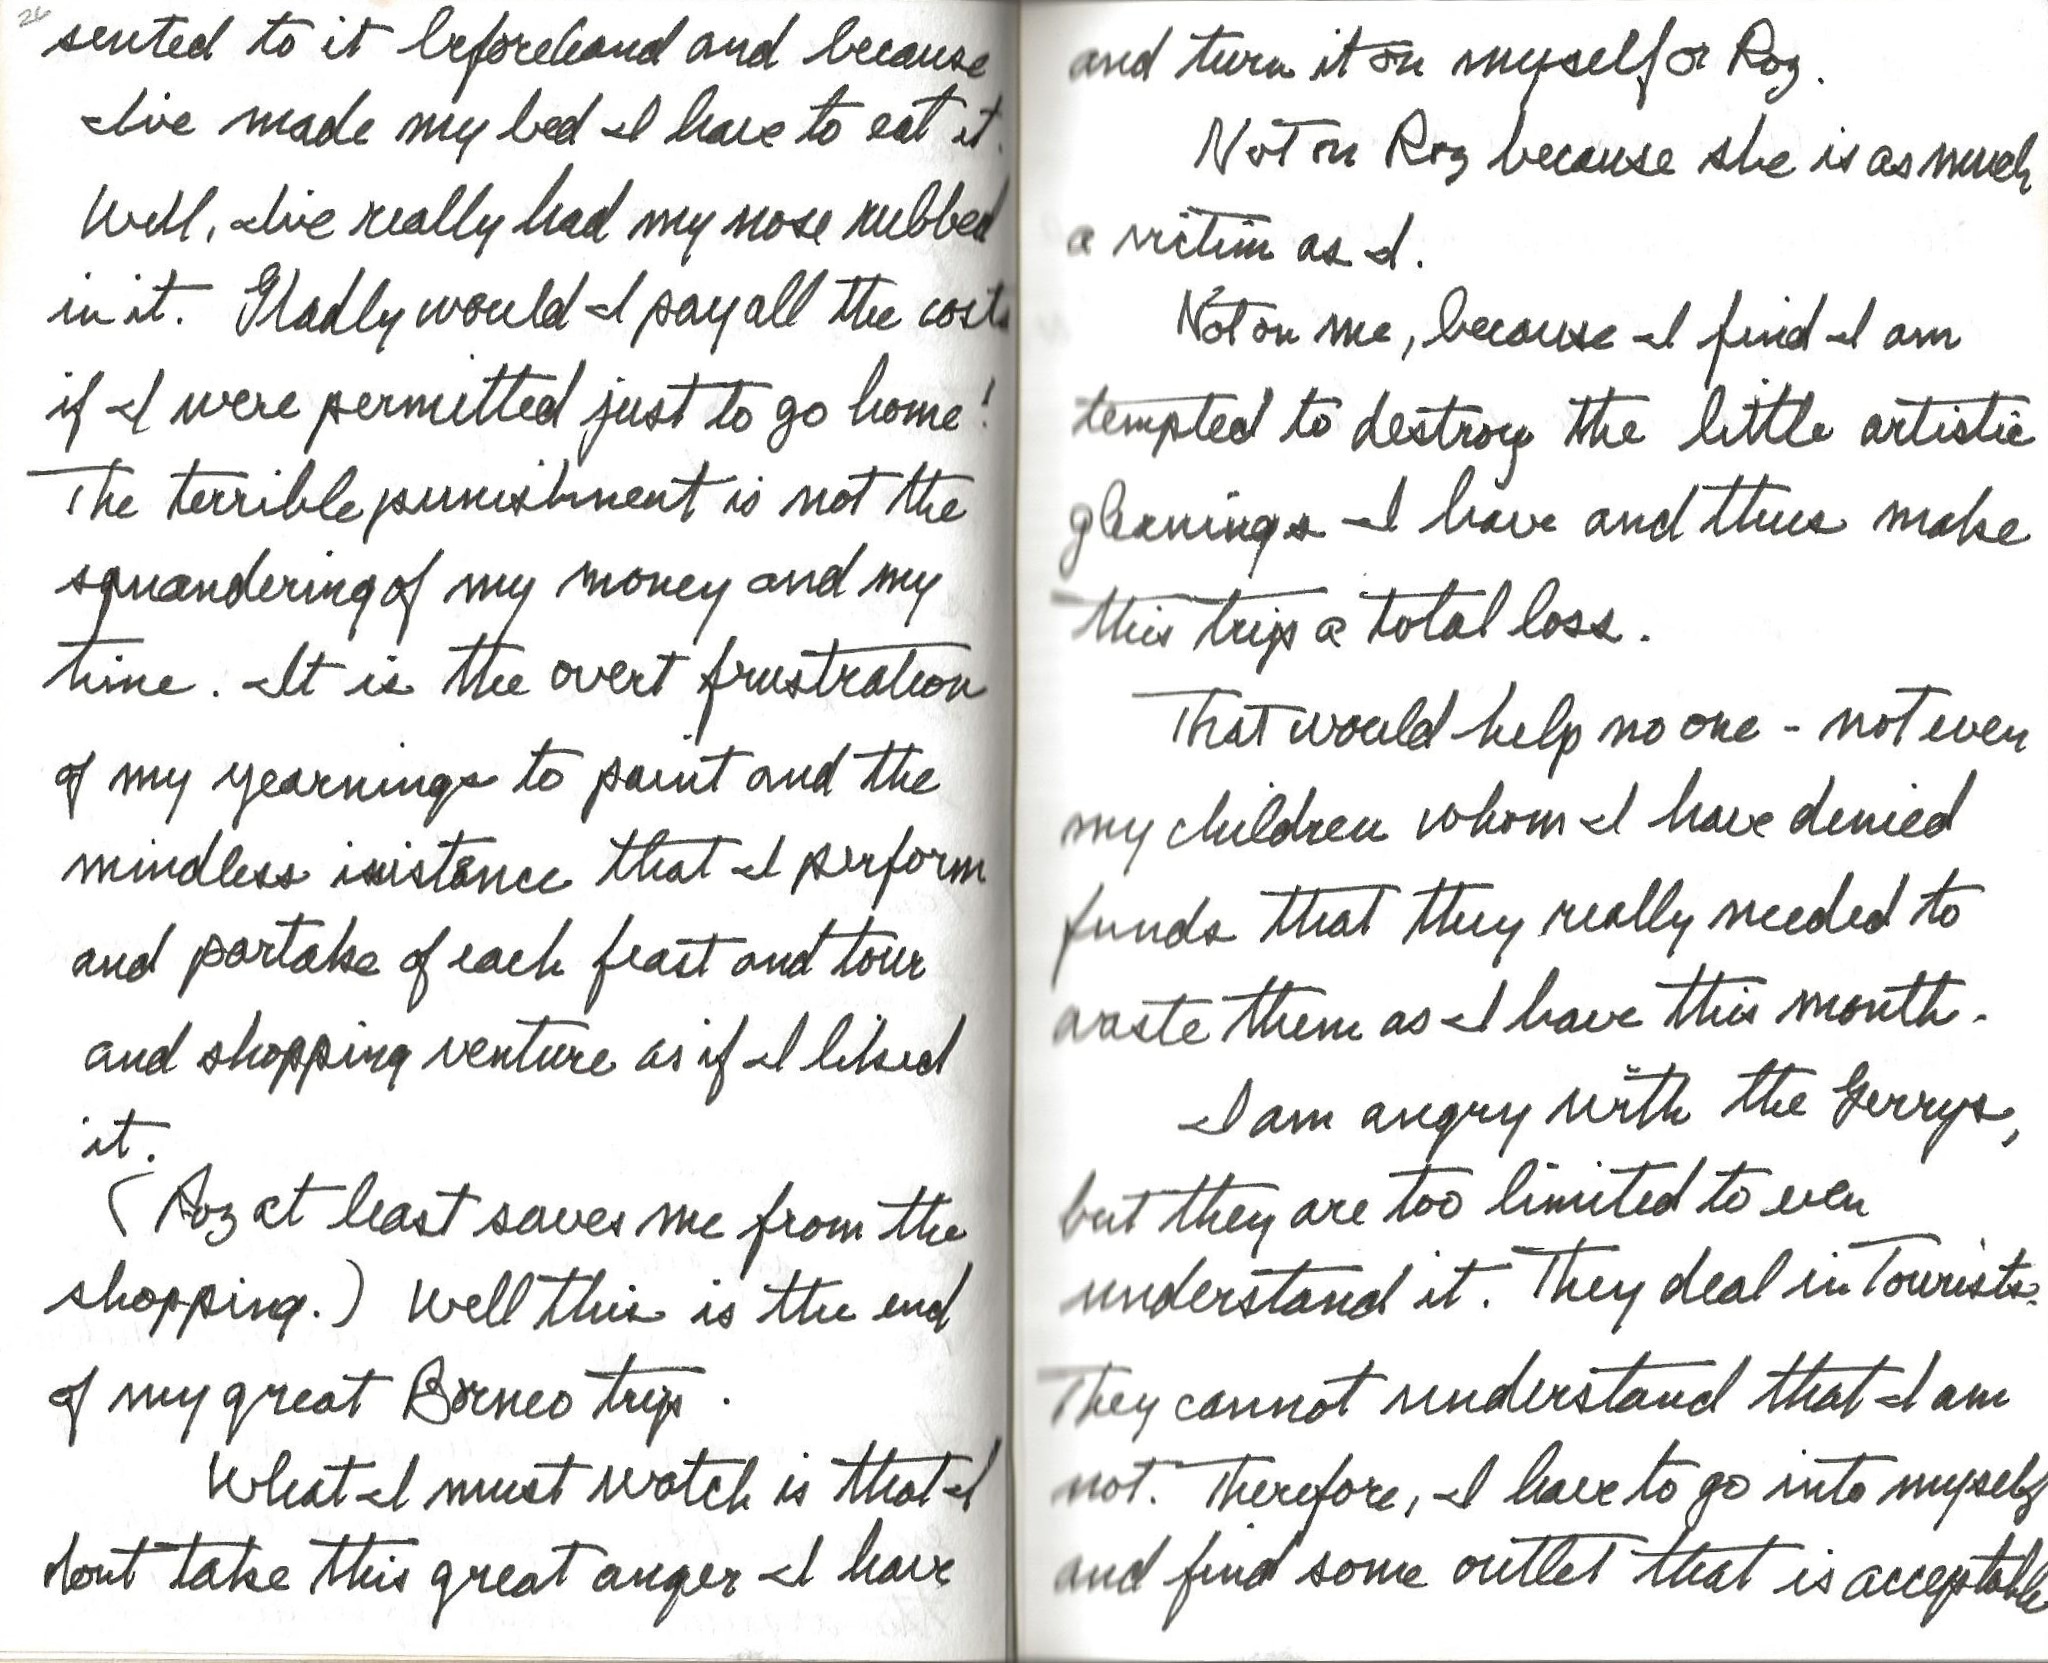 26
sented to it beforehand and because
I've made my bed I have to eat it.
Well, I've really had my nose rubbed
in it. Gladly would I pay all the costs
if I were permitted just to go home!
The terrible punishment is not the
squandering of my money and my
time. It is the overt frustration
of my yearnings to paint and the
mindless insistance that I perform
and partake of each feast and tour
and shopping venture as if I liked
it.
(Roz at least saves me from the
shopping.) Well this is the end
of my great Borneo trip.
What I must watch is that I
dont take this great anger I have
and turn it on myself or Roz.
Not on Roz because she is as much
a victim as I.
Not on me, because I find I am
tempted to destroy the little artistic
gleanings I have and thus make
this trip a total loss.
That would help no one - not even
my children whom I have denied
funds that they really needed to
waste them as I have this month.
I am angry with the Gerrys,
but they are too limited to even
understand it. They deal in Tourists.
They cannot understand that I am
not. Therefore, I have to go into myself
and find some outlet that is acceptable